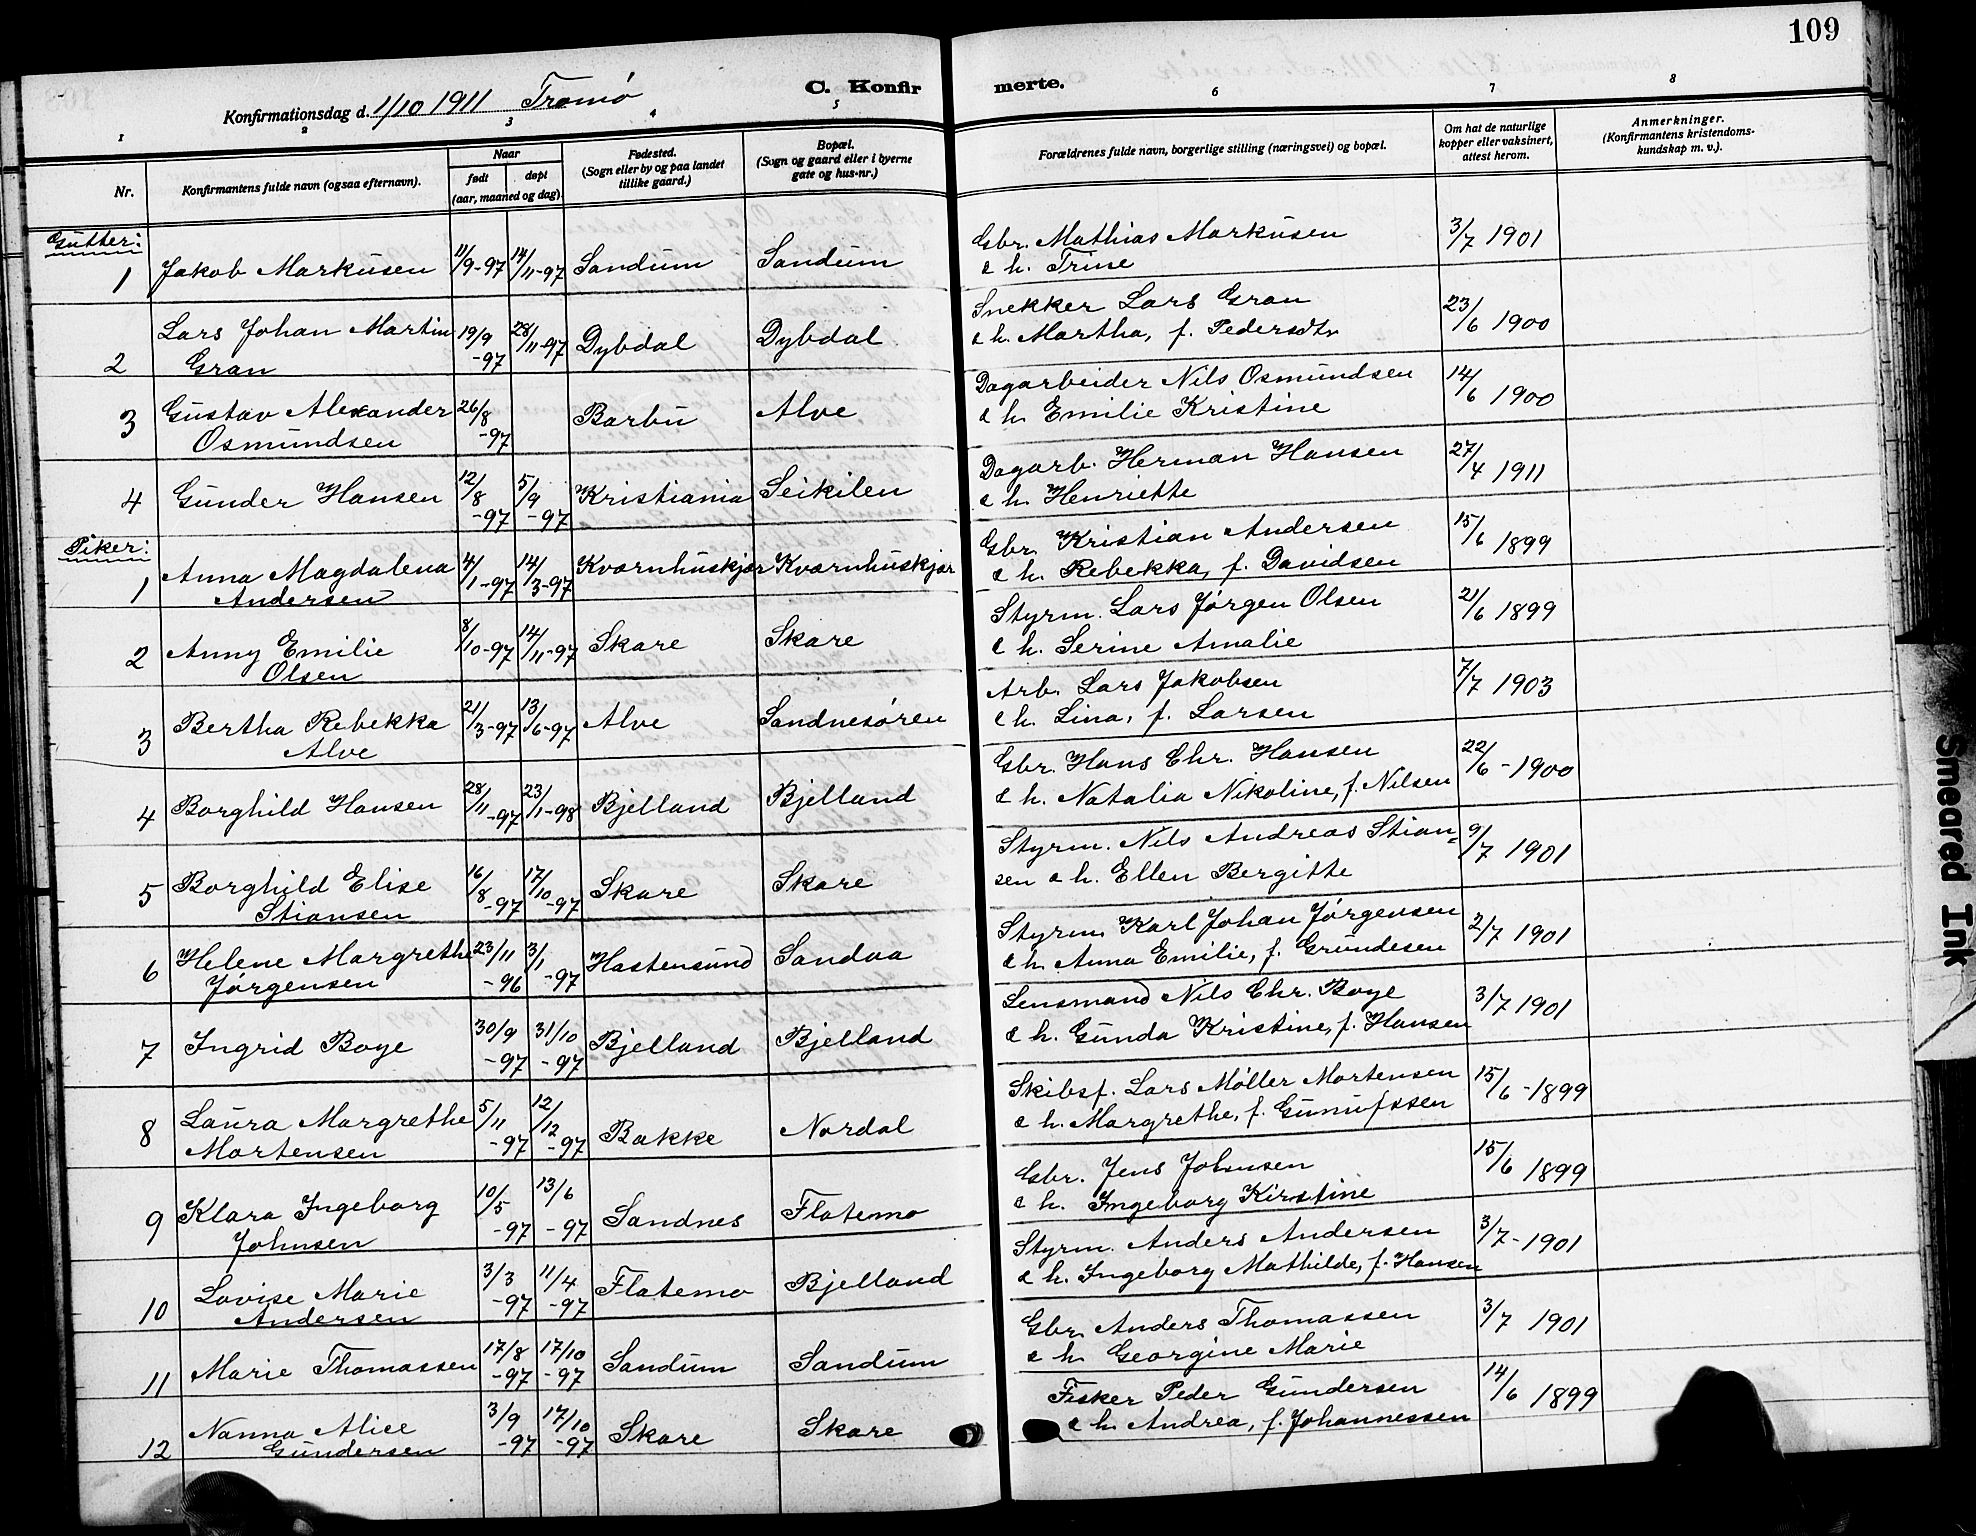 109
Konfirmationsdag d. 1/10 1911 Tromø
C. Konfirmerte.
1 2 3 4 5 6 7 8
Nr.
Konfirmantens fulde navn (ogsaa efternavn).
Naar
født
døpt
(aar, maaned og dag)
Fødested.
(Sogn eller by og paa landet
tillike gaard.)
Bopæl.
(Sogn og gaard eller i byerne
gate og hus-nr.)
Forældrenes fulde navn, borgerlige stilling (næringsvei) og bopæl.
Om hat de naturlige
kopper eller vaksinert,
attest herom.
Anmerkninger.
(Konfirmantens kristendoms-
kundskap m. v.).
Gutter:
1 Jakob Markusen 11/9-97 14/11-97 Sandum Sandum Gbr. Mathias Markusen 3/7 1901
& h. Trine
2 Lars Johan Martin 19/9 -97 28/11-97 Dybdal Dybdal Snekker Lars Gran 23/6 1900
Gran & h. Martha, f. Pedersdtr
3 Gustav Alexander 26/8 -97 Barbu Alve Dagarbeider Nils Osmundsen 14/6 1900
Osmundsen & h. Emilie Kristine
4 Gunder Hansen 12/8 -97 5/9 -97 Kristiania Seikilen Dagarb. Herman Hansen 27/4 1911
& h. Henriette
Piker:
1 Anna Magdalena 4/1-97 14/3-97 Kvarnhuskjær Kvarnhuskjær Gbr. Kristian Andersen 15/6 1899
Andersen & h. Rebekka, f. Davidsen
2 Anny Emilie 8/10-97 14/11-97 Skare Skare Styrm. Lars Jørgen Olsen 21/6 1899
Olsen & h. Serine Amalie
3 Bertha Rebekka 21/3-97 13/6-97 Alve Sandnesøren Arb. Lars Jakobsen 7/7 1903
Alve & h. Lina, f. Larsen
4 Borghild Hansen 28/11-97 23/1-98 Bjelland Bjelland Gbr. Hans Chr. Hansen 22/6-1900
& h. Natalia Nikoline, f. Nilsen
5 Borghild Elise 16/8-97 17/10-97 Skare Skare Styrm. Nils Andreas Stian- 9/7 1901
Stiansen sen & h. Ellen Bergitte
6 Helene Margrethe 23/11 -96 3/1 -97 Hastensund Sandaa Styrm. Karl Johan Jørgensen 2/7 1901
Jørgensen & h. Anna Emilie, f. Grundesen
7 Ingrid Boye 30/9 -97 31/10 -97 Bjelland Bjelland Lensmand Nils Chr. Boye 3/7 1901
& h. Gunda Kristine, f. Hansen
8 Laura Margrethe 5/11 -97 12/12 -97 Bakke Nordal Skibsf. Lars Møller Mortensen 15/6-1899
Mortensen & h. Margrethe, f.
9 Klara Ingeborg 10/5 -97 13/6 -97 Sandnes Flatemo Gbr. Jens Johnsen 15/6 1899
Johnsen & h. Ingeborg Kirstine
10 Lovise Marie 3/3 -97 11/4 -97 Flatemo Bjelland Styrm. Anders Andersen 3/7-1901
Andersen & h. Ingeborg Mathilde, f. Hansen
11 Marie Thomassen 17/8 -97 17/10 -97 Sandum Sandum Gbr. Anders Thomassen 3/7 1901
& h. Georgine Marie
12 Nanna Alice 3/9 -97 17/10 -97 Skare Skare Fisker Peder Gundersen 14/6 1899
Gundersen & h. Andrea, f. Johannessen
Smeared Ink